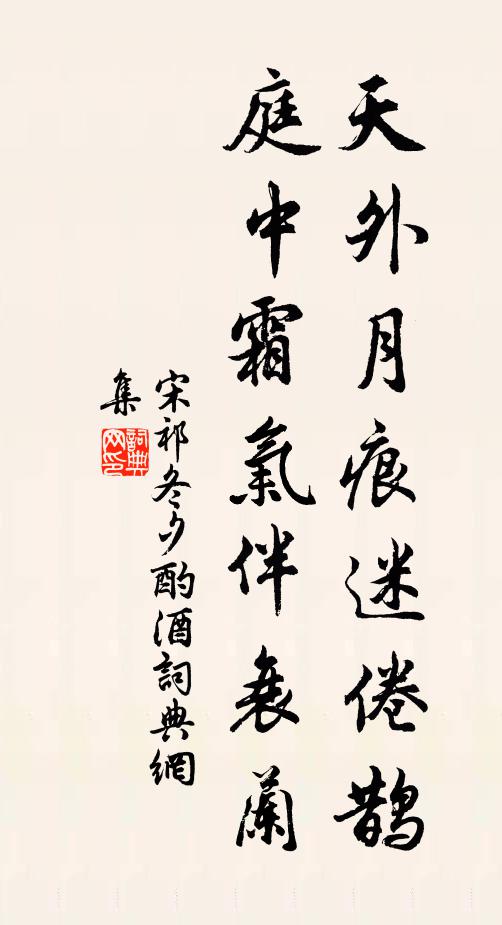 天外月痕迷倦鵲
庭中霜氣伴衰蘭
宋祁冬夕酌酒詞典網
集
詞典
网印